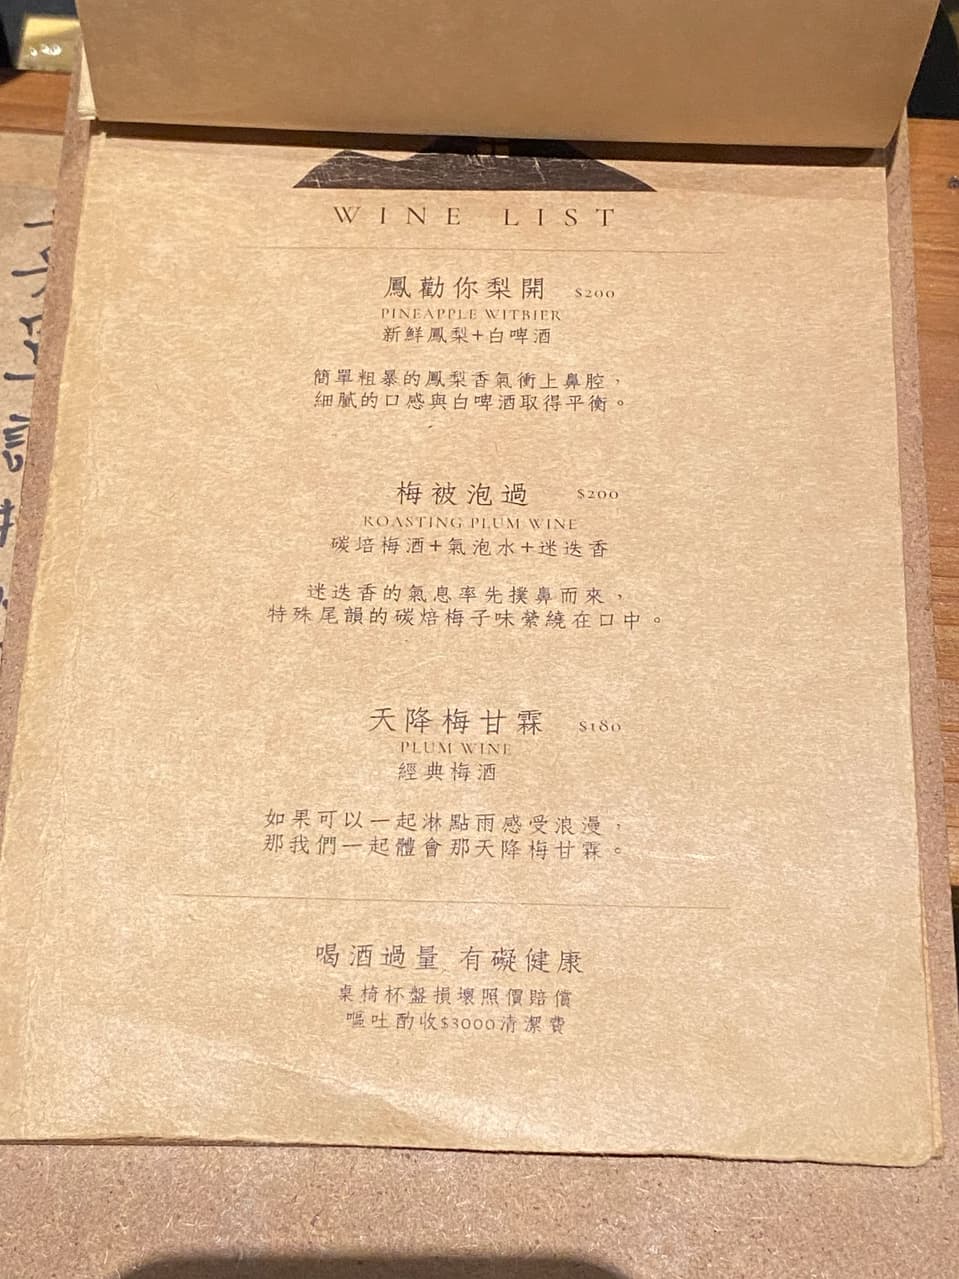 WINE LIST
鳳勸你梨開 $200
PINEAPPLE WITBIER
新鮮鳳梨+白啤酒
簡單粗暴的鳳梨香氣衝上鼻腔，
細膩的口感與白啤酒取得平衡。
梅被泡過 $200
ROASTING PLUM WINE
碳培梅酒+氣泡水+迷迭香
迷迭香的氣息率先撲鼻而來，
特殊尾韻的碳焙梅子味縈繞在口中。
天降梅甘霖 $180
PLUM WINE
經典梅酒
如果可以一起淋點雨感受浪漫，
那我們一起體會那天降梅甘霖。
喝酒過量 有礙健康
桌椅杯盤損壞照價賠償
嘔吐酌收$3000清潔費